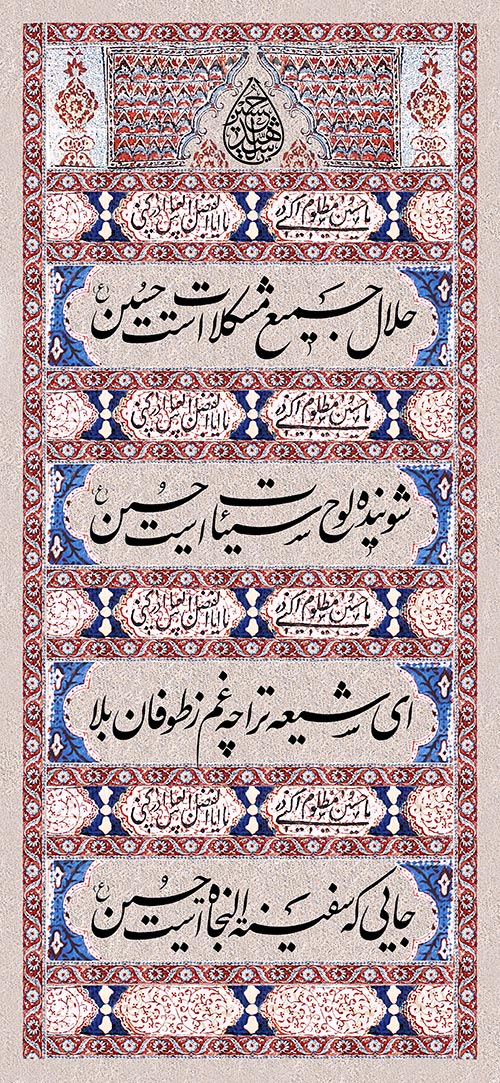 یا حسین مظلوم ادرکنی یا اباالفضل العباس ادرکنی
حلال جمیع مشکلات است حسین ع
یا حسین مظلوم ادرکنی یا اباالفضل العباس ادرکنی
شوینده لوح سیئات است حسین ع
یا حسین مظلوم ادرکنی یا اباالفضل العباس ادرکنی
ای شیعه ترا چه غم ز طوفان بلا
یا حسین مظلوم ادرکنی یا اباالفضل العباس ادرکنی
جایی که سفینة النجاه است حسین ع